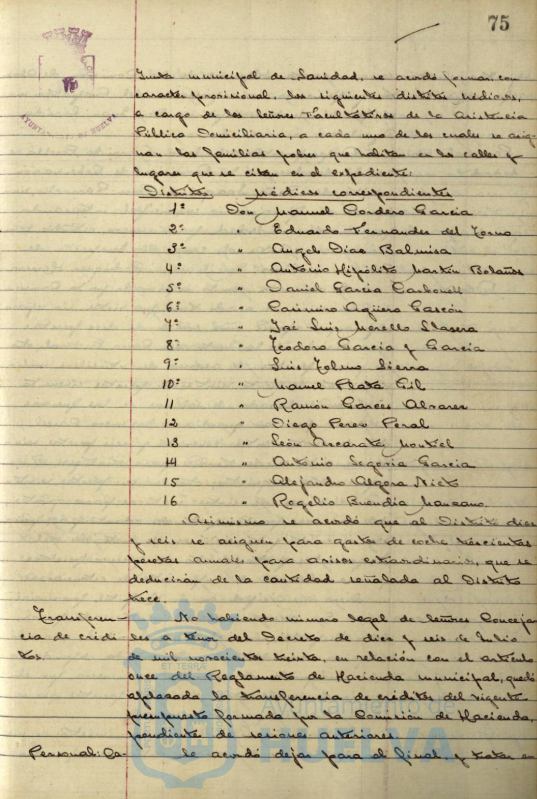 75
AYUNTAMIENTO DE HUELVA
Junta municipal de Sanidad, se acordó formar, con
caracter provisional, los siguientes distritos Médicos,
a cargo de los Señores Facultativos de la Asistencia
Pública Domiciliaria, a cada uno de los cuales se asig-
nan las familias pobres que habitan en las calles y
lugares que se citan en el expediente:
Distritos Médicos correspondientes
1º Don Manuel Cordero García
2º " Eduardo Fernandez del Torno
3º " Angel Diaz Balmisa
4º " Antonio Hipólito Martín Bolaños
5º " Daniel García Carbonell
6º " Casimiro Agüero Gascón
7º " José Luis Morello
8º " Teodoro García y García
9º " Luis Tolmo Sierra
10º " Manuel Plata Gil
11 " Ramón Garcés Alvarez
12 " Diego Perez Peral
13 " León Azcarate Montiel
14 " Antonio Segovia García
15 " Alejandro Algora Nieto
16 " Rogelio Buendía Manzano.
Asimismo se acordó que al Distrito diez
y seis se asignen para gastos de coche trescientas
pesetas anuales para avisos extraordinarios, que se
deducirán de la cantidad señalada al Distrito
trece.
Transferen- No habiendo número legal de Señores Conceja-
cia de crédi- les a tenor del Decreto de diez y seis de Junio
tos. de mil novecientos treinta, en relación con el artículo
once del Reglamento de Hacienda municipal, quedó
aplazada la transferencia de créditos del vigente
presupuesto formada por la Comisión de Hacienda,
pendiente de sesiones anteriores.
Personal: Ca- Se acordó dejar para el final, y tratar en
ET TERRA
Ayuntamiento de
HUELVA